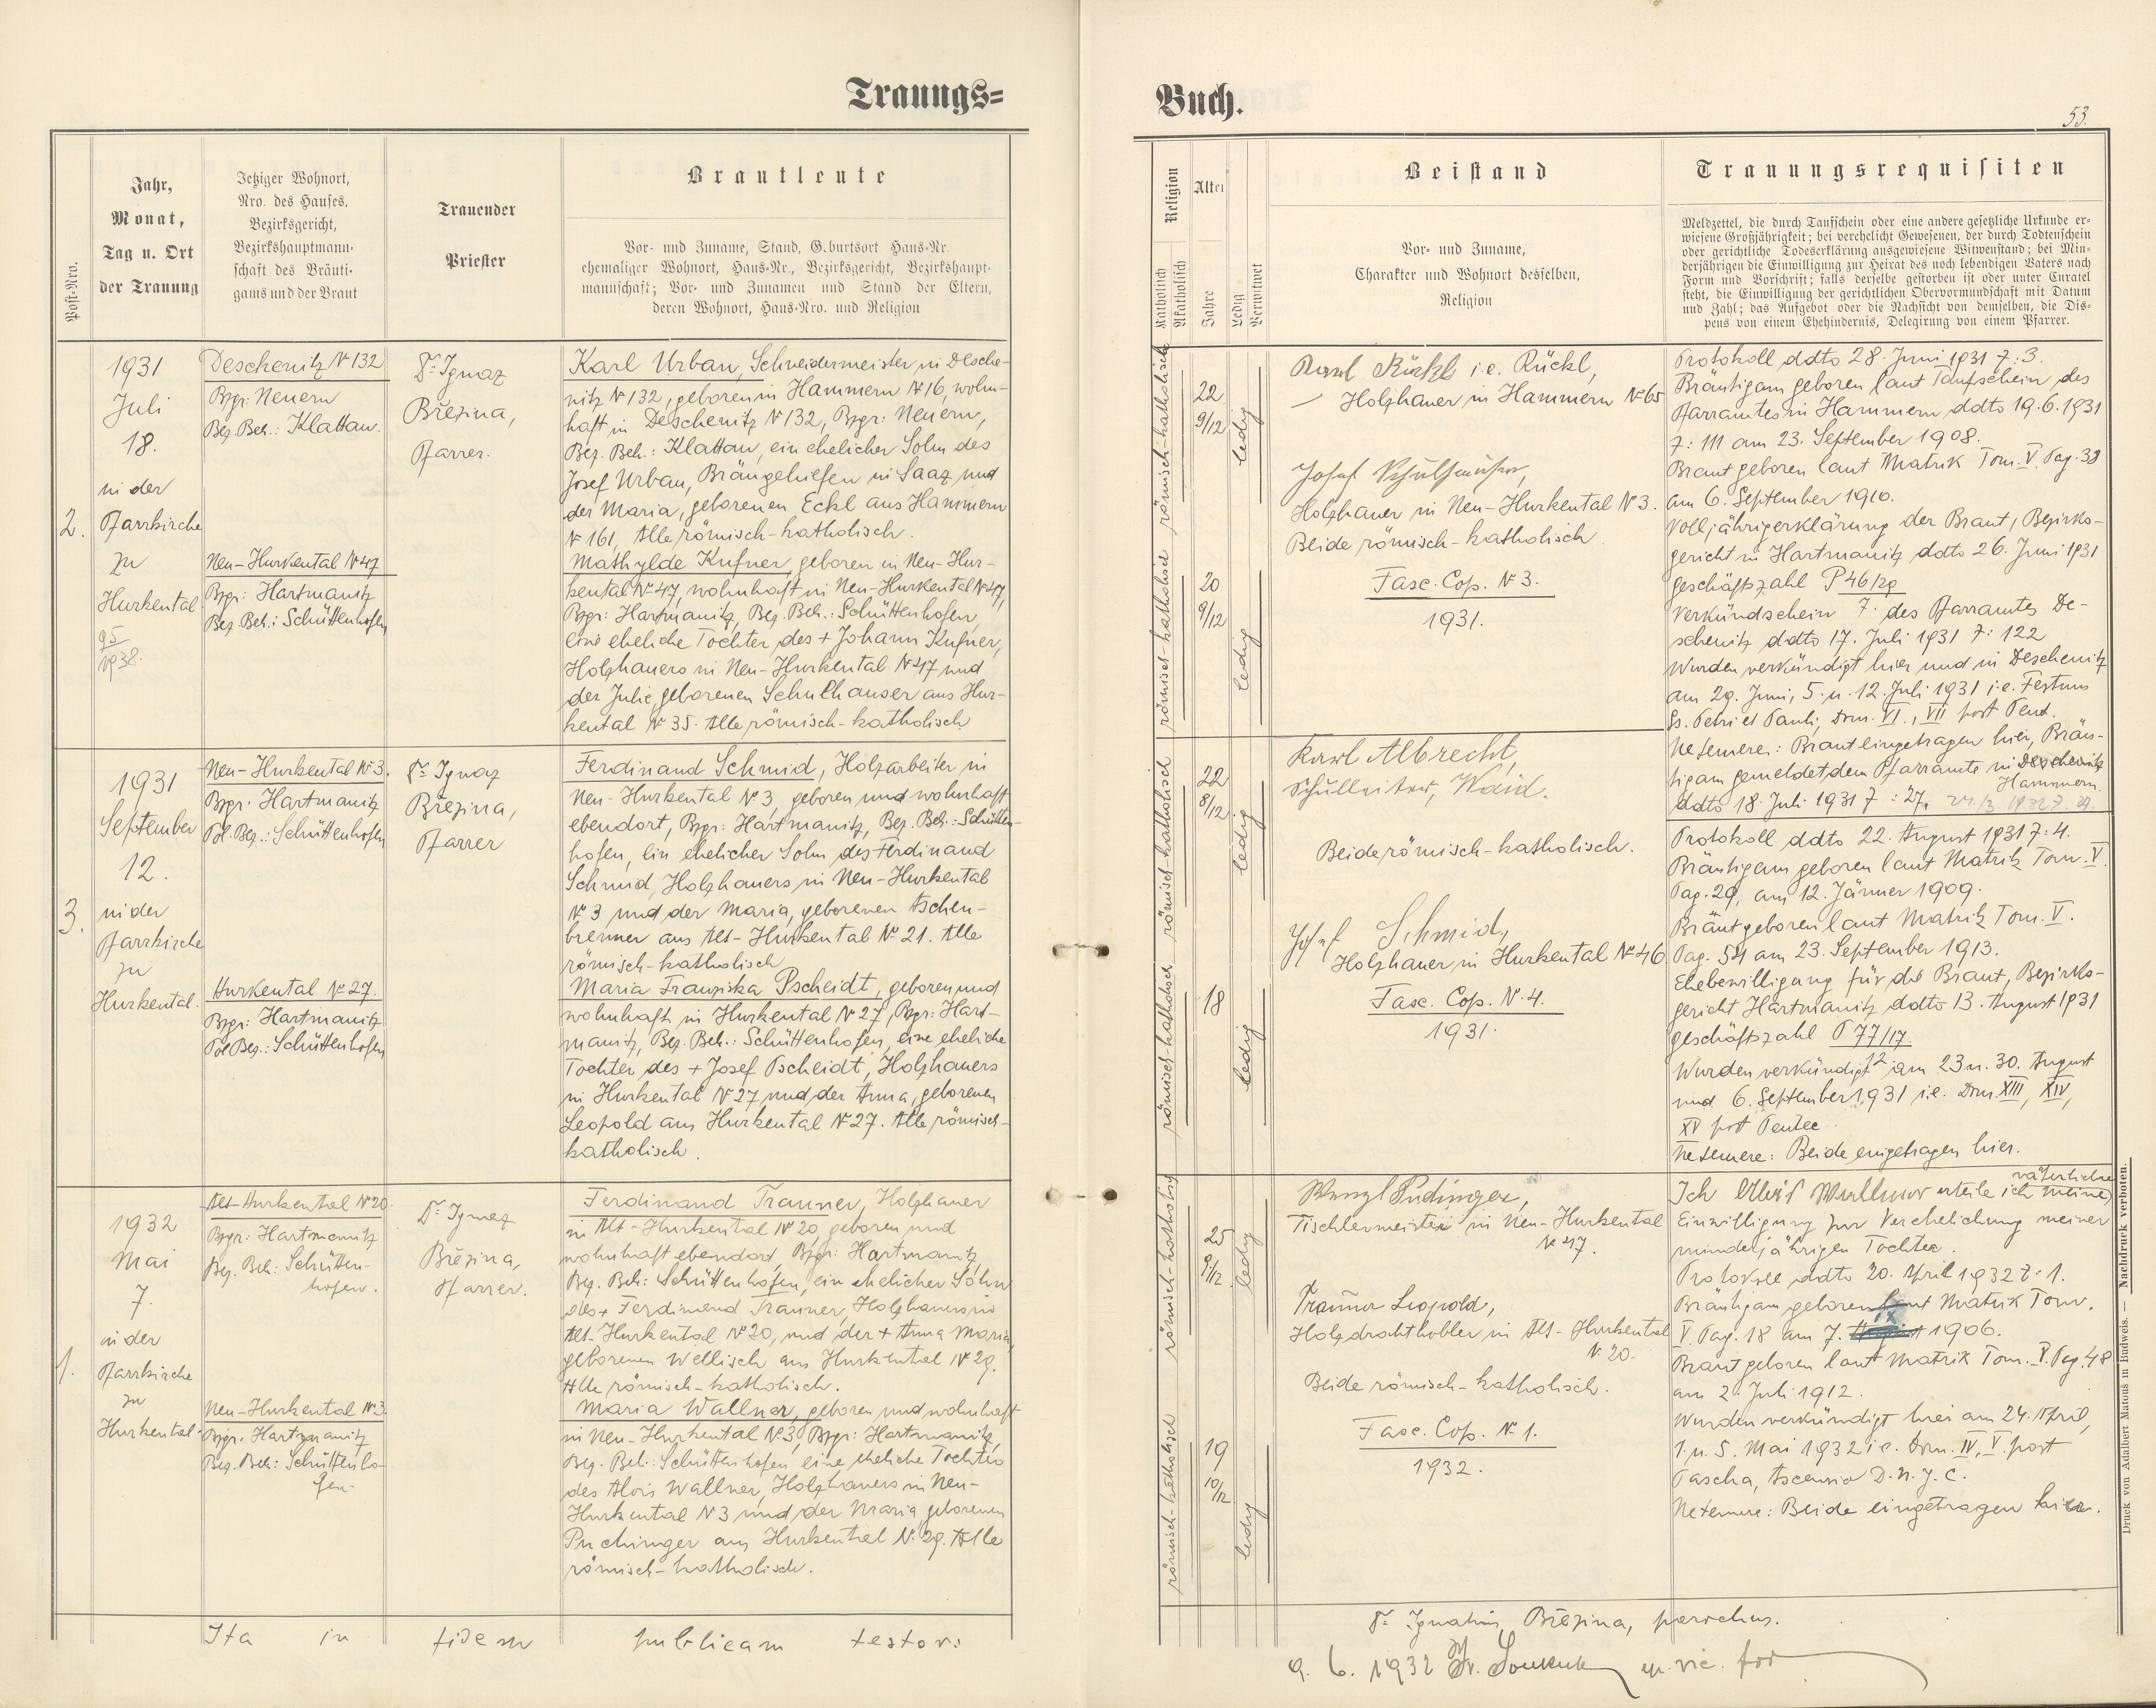 Trauungs=
Buch.
53.
Post-Nro.
Jahr,
Monat,
Tag u. Ort
der Trauung
Jetziger Wohnort,
Nro. des Hauses,
Bezirksgericht,
Bezirkshauptmann-
schaft des Bräuti-
gams und der Braut
Trauender
Priester
Brautleute
Vor- und Zuname, Stand, Geburtsort Haus-Nr.
ehemaliger Wohnort, Haus-Nr., Bezirksgericht, Bezirkshaupt-
mannschaft; Vor- und Zunamen und Stand der Eltern,
deren Wohnort, Haus-Nro. und Religion
Religion
Katholisch
Akatholisch
Alter
Jahre
Ledig
Verwitwet
Beistand
Vor- und Zuname,
Charakter und Wohnort desselben,
Religion
Trauungsrequisiten
Meldzettel, die durch Taufschein oder eine andere gesetzliche Urkunde er-
wiesene Großjährigkeit; bei verehelicht Gewesenen, der durch Todtenschein
oder gerichtliche Todeserklärung ausgewiesene Witwenstand; bei Min-
derjährigen die Einwilligung zur Heirat des noch lebendigen Vaters nach
Form und Vorschrift; falls derselbe gestorben ist oder unter Curatel
steht, die Einwilligung der gerichtlichen Obervormundschaft mit Datum
und Zahl; das Aufgebot oder die Nachsicht von demselben, die Dis-
pens von einem Ehehindernis, Delegirung von einem Pfarrer.
2.
1931
Juli
18.
in der
Pfarrkirche
zu
Hurkental
1938.
Deschenitz № 132
Bzgr: Neuern
Bez. Beh.: Klattau.
Neu-Hurkental № 47
Bzgr: Hartmanitz
Bez. Beh.: Schüttenhofen
Dr Ignaz
Březina,
Pfarrer.
Karl Urban, Schneidermeister in Desche-
nitz № 132, geboren in Hammern № 16, wohn-
haft in Deschenitz № 132, Bzgr: Neuern,
Bez. Beh.: Klattau, ein ehelicher Sohn des
Josef Urban, Bräugehielfen in Saaz und
der Maria, geborenen Eckl aus Hammern
№ 161, Alle römisch-katholisch.
Mathylde Kufner, geboren in Neu-Hur-
kental № 47, wohnhaft in Neu-Hurkental № 47,
Bzgr: Hartmanitz, Bez. Beh.: Schüttenhofen,
eine eheliche Tochter des + Johann Kufner,
Holzhauers in Neu-Hurkental № 47 und
der Julie geborenen Schulhauser aus Hur-
kental № 35. Alle römisch-katholisch.
römisch-katholisch
römisch-katholisch
22
9/12
20
9/12
ledig
ledig
Karl Rückl i.e. Rückl,
Holzhauer in Hammern № 65
Josef Schulhauser,
Holzhauer in Neu-Hurkental № 3.
Beide römisch-katholisch.
Fasc. Cop. № 3.
1931.
Protokoll ddto 28. Juni 1931 Z: 3.
Bräutigam geboren laut Taufschein des
Pfarramtes in Hammern ddto 19.6.1931
Z: 111 am 23. September 1908.
Braut geboren laut Matrik Tom. V. Pag. 38
am 6. September 1910.
Volljährigerklärung der Braut, Bezirks-
gericht in Hartmanitz ddto 26. Juni 1931
geschäftszahl P 46/29
Verkündschein Z. des Pfarramtes De-
schenitz ddto 17. Juli 1931 Z: 122
Wurden verkündigt hier und in Deschenitz
am 29. Juni, 5. u. 12. Juli 1931 i.e. Festum
Ss. Petri et Pauli, Dom. VI., VII post Pent.
Ne temere: Braut eingetragen hier, Bräu-
tigam gemeldet dem Pfarramte in Deschenitz
Hammern
ddto 18. Juli 1931 Z: 27.
3.
1931
September
12.
in der
Pfarrkirche
zu
Hurkental.
Neu-Hurkental № 3.
Bzgr. Hartmanitz
Pol. Bez.: Schüttenhofen
Hurkental № 27.
Bzgr: Hartmanitz
Pol Bez.: Schüttenhofen
Dr Ignaz
Březina,
Pfarrer
Ferdinand Schmid, Holzarbeiter in
Neu-Hurkental № 3, geboren und wohnhaft
ebendort, Bzgr: Hartmanitz, Bez. Beh.: Schütten-
hofen, ein ehelicher Sohn des Ferdinand
Schmid, Holzhauers in Neu-Hurkental
№ 3 und der Maria, geborenen Aschen-
brenner aus Alt-Hurkental № 21. Alle
römisch-katholisch
Maria Franziska Pscheidt, geboren und
wohnhaft in Hurkental № 27, Bzgr: Hart-
manitz, Bez. Beh.: Schüttenhofen, eine eheliche
Tochter des + Josef Pscheidt, Holzhauers
in Hurkental № 27 und der Anna, geborenen
Leopold aus Hurkental № 27. Alle römisch-
katholisch.
römisch-katholisch
römisch-katholisch
22
8/12
18
ledig
ledig
Karl Albrecht,
Schulleiter, Haid.
Beide römisch-katholisch.
Josef Schmid,
Holzhauer in Hurkental № 46
Fasc. Cop. № 4.
1931.
Protokoll ddto 22. August 1931 Z: 4.
Bräutigam geboren laut Matrik Tom. V.
Pag. 29, am 12. Jänner 1909.
Braut geboren laut Matrik Tom. V.
Pag. 54 am 23. September 1913.
Ehebewilligung für die Braut, Bezirks-
gericht Hartmanitz ddto 13. August 1931
geschäftszahl P 77/17.
12
Wurden verkündigt am 23 u. 30. August
und 6. September 1931 i.e. Dom. XIII, XIV,
XV post Pentec.
Ne temere: Beide eingetragen hier.
1.
1932
Mai
7.
in der
Pfarrkirche
zu
Hurkental.
Alt-Hurkental № 20.
Bzgr: Hartmanitz
Bez. Beh: Schütten-
hofen.
Neu-Hurkental № 3.
Bzgr. Hartmanitz
Bez. Beh: Schüttenho-
fen.
Dr Ignaz
Březina,
Pfarrer.
Ferdinand Trauner, Holzhauer
in Alt-Hurkental № 20, geboren und
wohnhaft ebendort, Bzgr: Hartmanitz,
Bez. Beh: Schüttenhofen, ein ehelicher Sohn
des + Ferdinand Trauner, Holzhauers in
Alt-Hurkental № 20, und der + Anna Maria,
geborenen Wellisch aus Hurkental № 29.
Alle römisch-katholisch.
Maria Wallner, geboren und wohnhaft
in Neu-Hurkental № 3, Bzgr: Hartmanitz,
Bez. Beh.: Schüttenhofen eine eheliche Tochter
des Alois Wallner, Holzhauers in Neu-
Hurkental № 3 und der Maria, geborenen
Puchinger aus Hurkental № 29. Alle
römisch-katholisch.
römisch-katholisch
römisch-katholisch
25
9/12
19
10/12
ledig
ledig
Wenzl Pudinger,
Tischlermeister in Neu-Hurkental
№ 47.
Trauner Leopold,
Holzdrahthobler in Alt-Hurkental
№ 20.
Beide römisch-katholisch.
Fasc. Cop. № 1.
1932.
väterliche
Ich Alois Wallner erteile ich meine
Einwilligung zur Verehelichung meiner
minderjährigen Tochter.
Protokoll ddto 20. April 1932 Z: 1.
Bräutigam geboren laut Matrik Tom.
IX
V. Pag. 18 am 7. August 1906.
Braut geboren laut Matrik Tom. V. Pag. 48
am 2. Juli 1912.
Wurden verkündigt hier am 24. April,
1. u. 5. Mai 1932 i.e. Dom. IV, V. post
Pascha, Ascensio D. N. J. C.
Ne temere: Beide eingetragen hier.
Ita in fidem publicam testor:
Dr Ignatius Březina, parochus.
9. 6. 1932 Fr. Soukup ep. vic. for
Druck von Adalbert Matous in Budweis. — Nachdruck verboten.